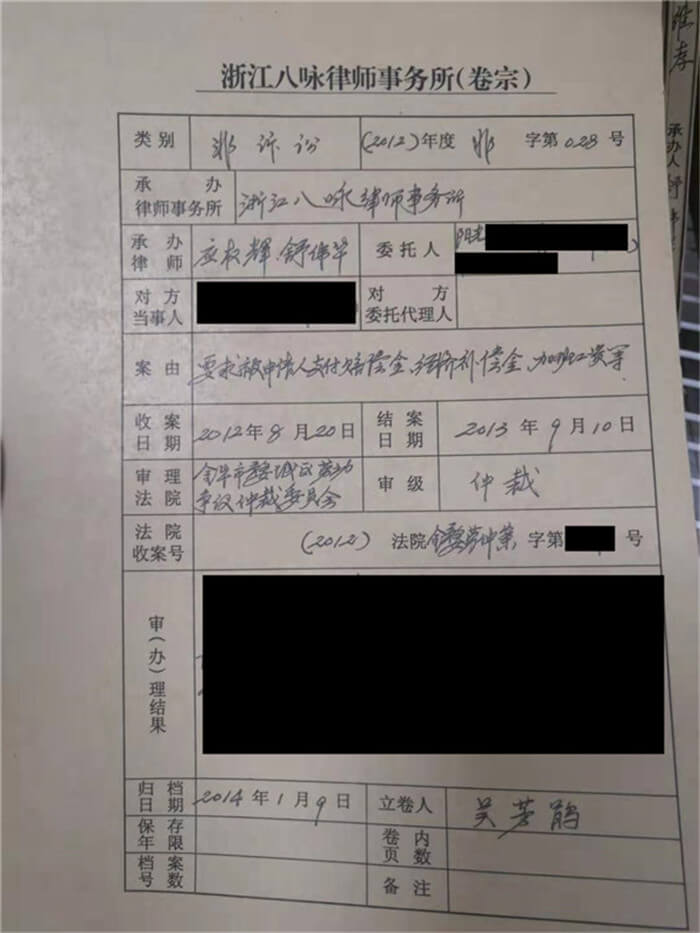 浙江八咏律师事务所(卷宗)
类别 非诉讼 (2012)年度 非 字第028号
承办律师事务所 浙江八咏律师事务所
承办律师 应 辉 舒伟 委托人 阳光
对方当事人 对方委托代理人
案由 要求被申请人支付赔偿金、经济补偿金、加班工资等
收案日期 2012年8月20日 结案日期 2013年9月10日
审理法院 金华市婺城区劳动
争议仲裁委员会 审级 仲裁
法院收案号 (2012) 法院金婺劳仲案 字第 号
审(办)理结果
归档日期 2014年1月9日 立卷人 吴芳
保存年限 卷内页数
档案号数 备注
承办人